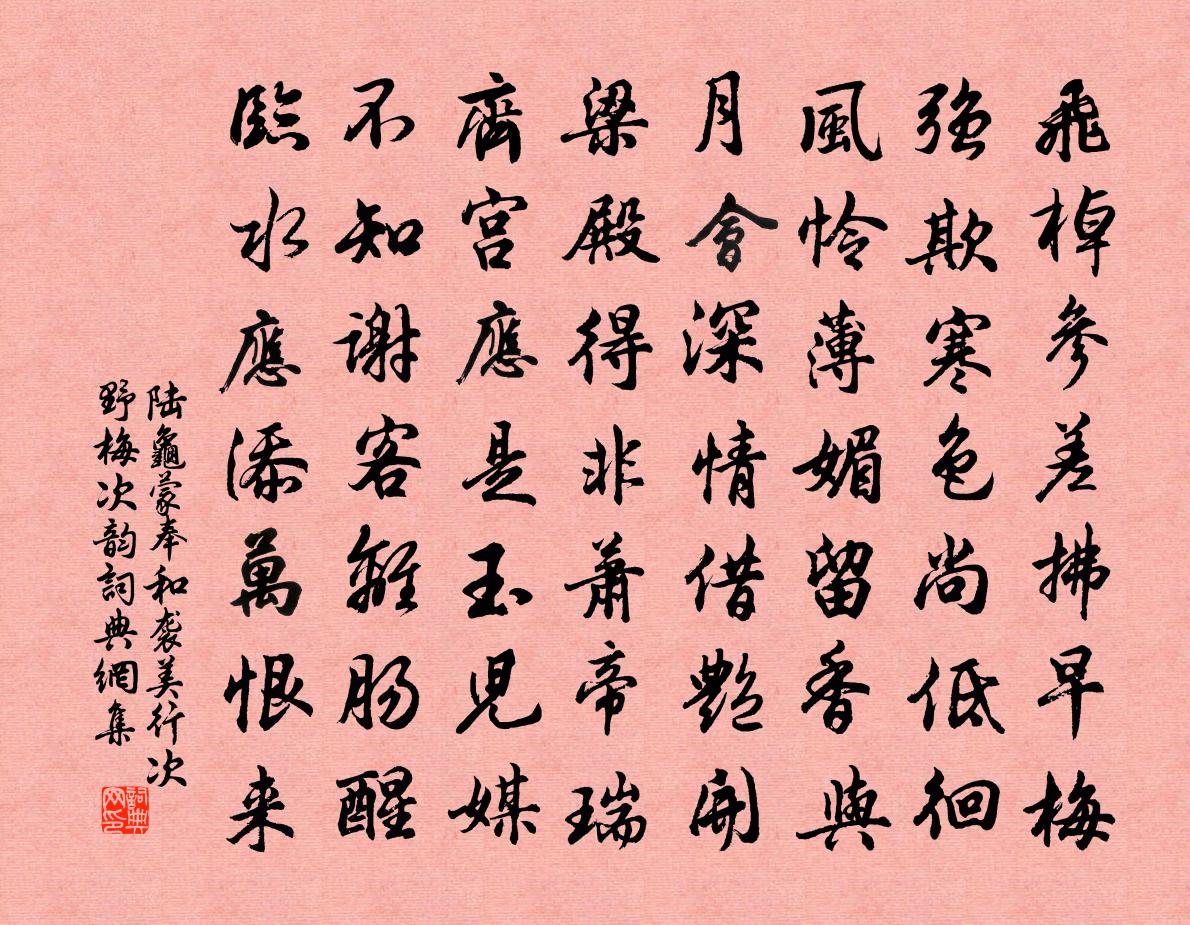 飛棹參差拂早梅
強欺寒色尚低徊
風怜薄媚留香與
月會深情借艷開
梁殿得非蕭帝瑞
齊宮應是玉児媒
不知謝客離腸醒
臨水應添萬恨来
陆龜蒙奉和袭美行次
野梅次韵詞典網集
詞典网印